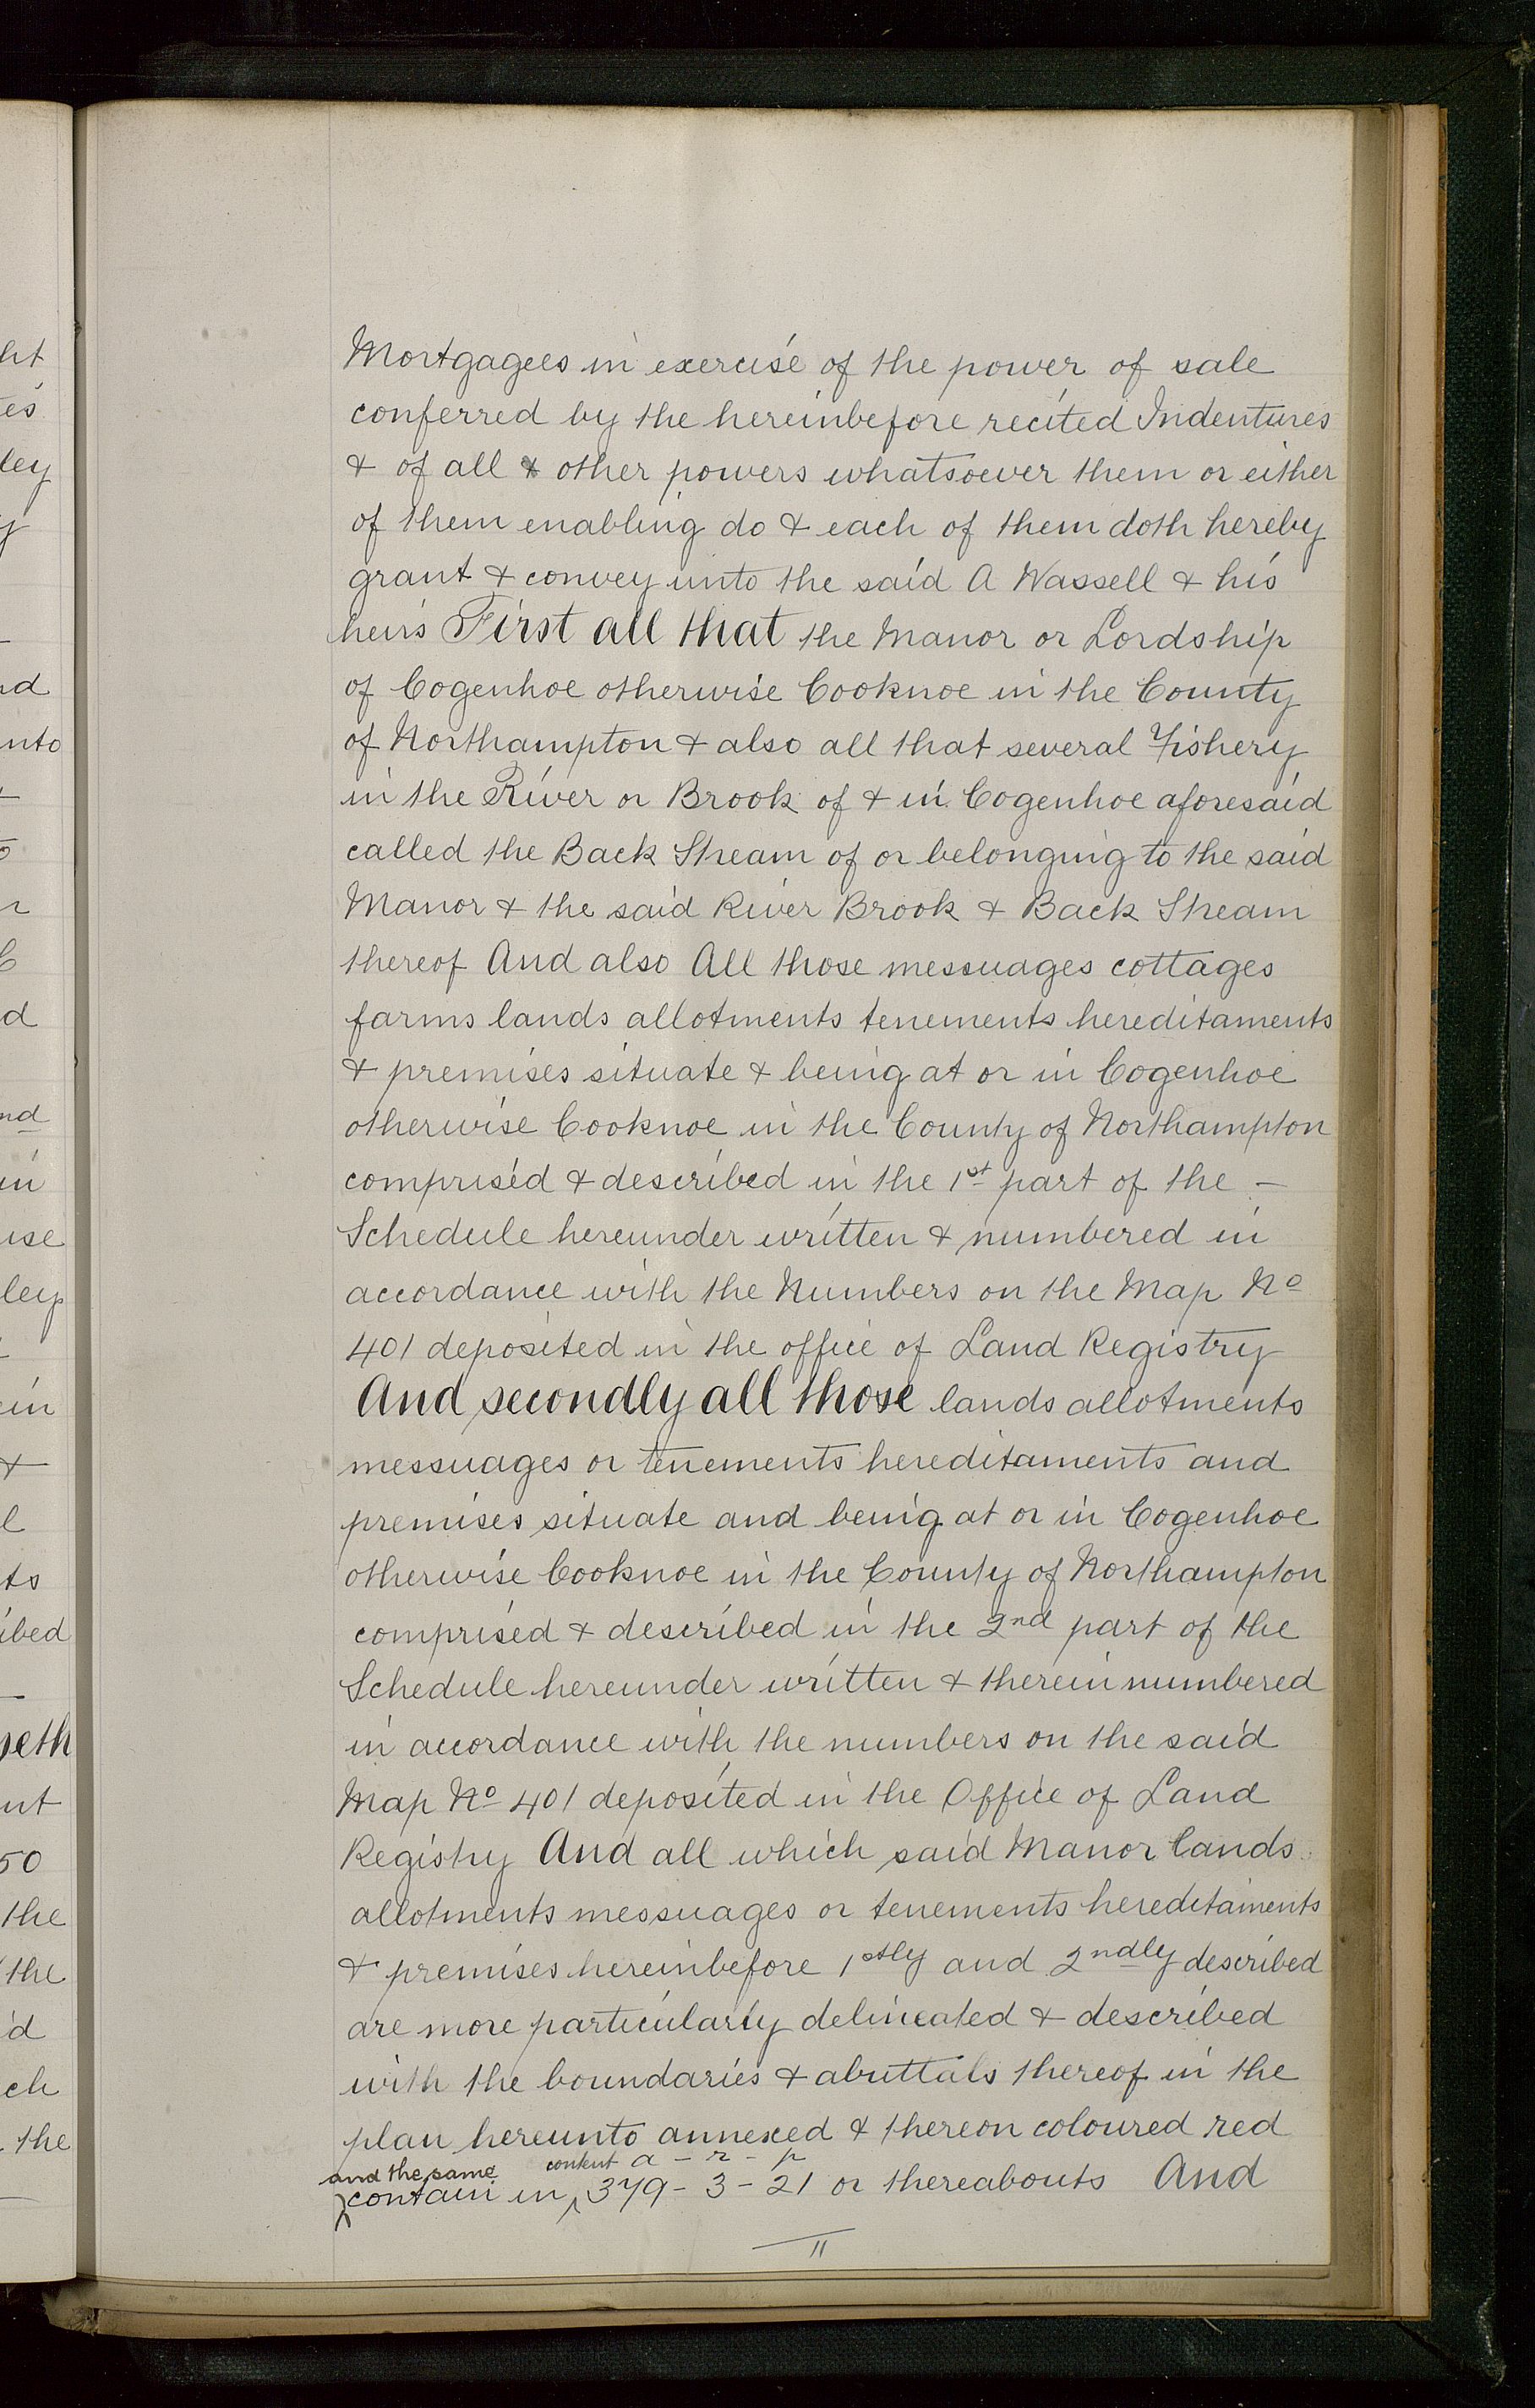 Mortgagees in exercise of the power of sale
conferred by the hereinbefore recited Indentures
& of all & other powers whatsoever them or either
of them enabling do & each of them doth hereby
grant & convey unto the said A Wassell & his
heirs First all that the Manor or Lordship
of Cogenhoe otherwise Cooknoe in the County
of Northampton & also all that several Fishery
in the River or Brook of & in Cogenhoe aforesaid
called the Back Stream of or belonging to the said
Manor & the said River Brook & Back Stream
thereof And also All those messuages cottages
farms lands allotments tenements hereditaments
& premises situate & being at or in Cogenhoe
otherwise Cooknoe in the County of Northampton
comprised & described in the 1st part of the –
Schedule hereunder written & numbered in
accordance with the Numbers on the Map No
401 deposited in the office of Land Registry
And secondly all those lands allotments
messuages or tenements hereditaments and
premises situate and being at or in Cogenhoe
otherwise Cooknoe in the County of Northampton
comprised & described in the 2nd part of the
Schedule hereunder written & therein numbered
in accordance with the numbers on the said
Map No 401 deposited in the Office of Land
Registry And all which said Manor lands
allotments messuages or tenements hereditaments
& premises hereinbefore 1stly and 2ndly described
are more particularly delineated & described
with the boundaries & abuttals thereof in the
plan hereunto annexed & thereon coloured red
and the same content a – r – p
contain in 379 – 3 – 21 or thereabouts And
11
ht
es
ley
y
nd
nto
d
nd
in
ise
ley
ein
&
l
ts
ibed
seth
nt
50
the
the
d
ch
the